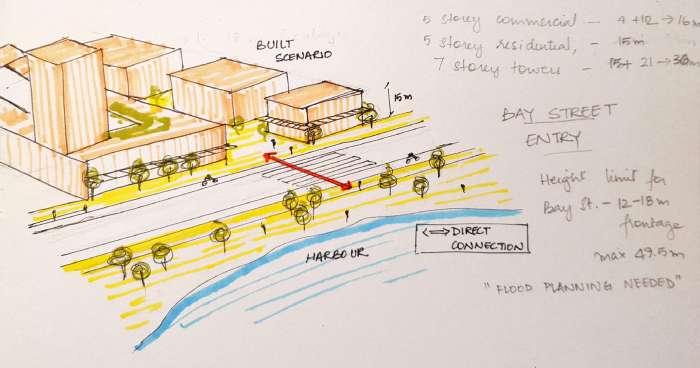 5 storey commercial – 4+12 → 16m
5 storey residential, – 15m
7 storey towers – 15+ 21 → 36m
BUILT
SCENARIO
15m
BAY STREET
ENTRY
Height limit for
Bay St. – 12-18m
frontage
max 49.5m
"FLOOD PLANNING NEEDED"
⟺ DIRECT
CONNECTION
HARBOUR